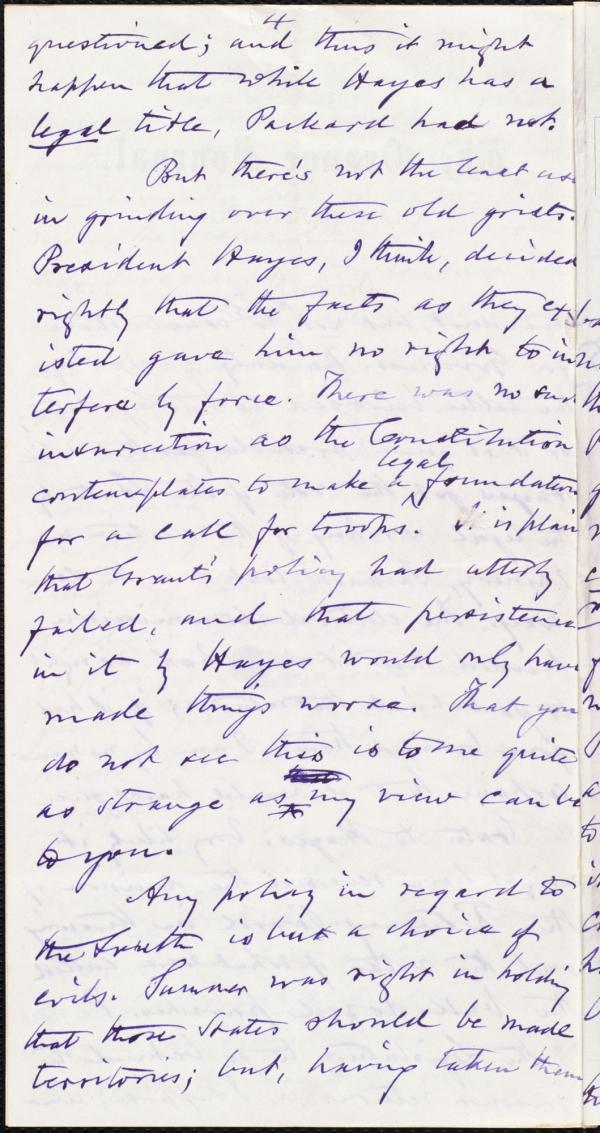 4
questioned; and thus it might
happen that while Hayes has a
legal title, Packard had not.
But there's not the least use
in grinding over these old grists.
President Hayes, I think, decided
rightly that the facts as they ex-
isted gave him no right to in-
terfere by force. There was no such
insurrection as the Constitution
legal
contemplates to make a foundation
for a call for troops. It is plain
that Grant's policy had utterly
failed, and that persistence
in it by Hayes would only have
made things worse. That you
do not see this is to me quite
as strange as my view can be
to you.
Any policy in regard to
the South is but a choice of
evils. Sumner was right in holding
that those States should be made
territories; but, having taken them